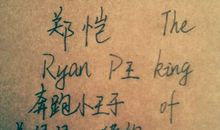 郑恺 The
Ryan P王 king
奔跑小王子 of